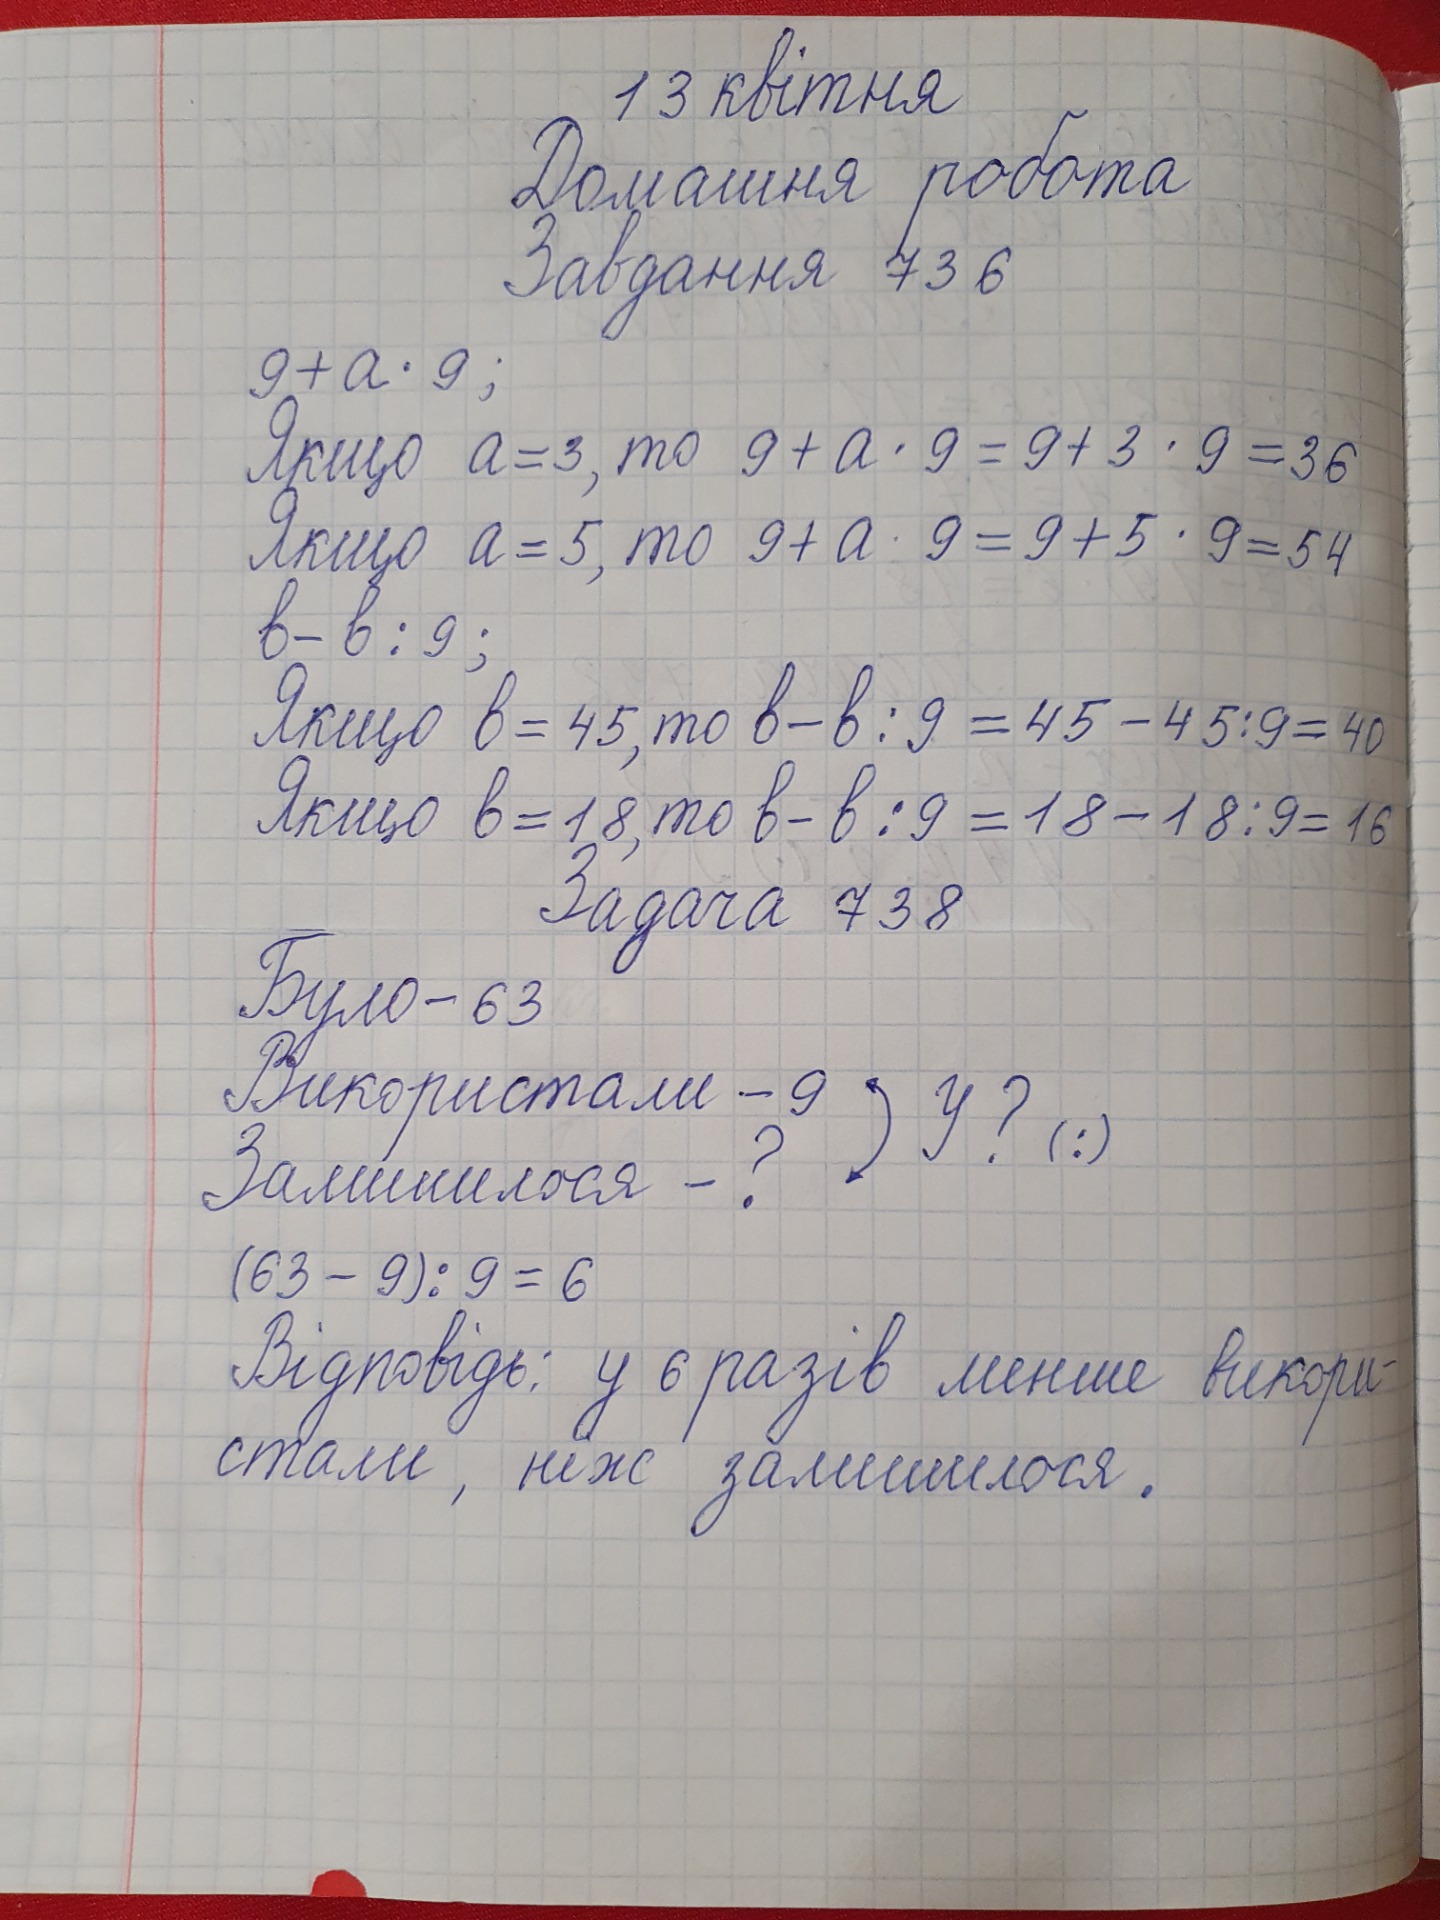 13 квітня
Домашня робота
Завдання 736
9+а·9;
Якщо а=3, то 9+а·9=9+3·9=36
Якщо а=5, то 9+а·9=9+5·9=54
в-в:9;
Якщо в=45, то в-в:9=45-45:9=40
Якщо в=18, то в-в:9=18-18:9=16
Задача 738
Було-63
Використали -9 У ? (:)
Залишилося - ?
(63-9):9=6
Відповідь: у 6 разів менше викори-
стали, ніж залишилося.